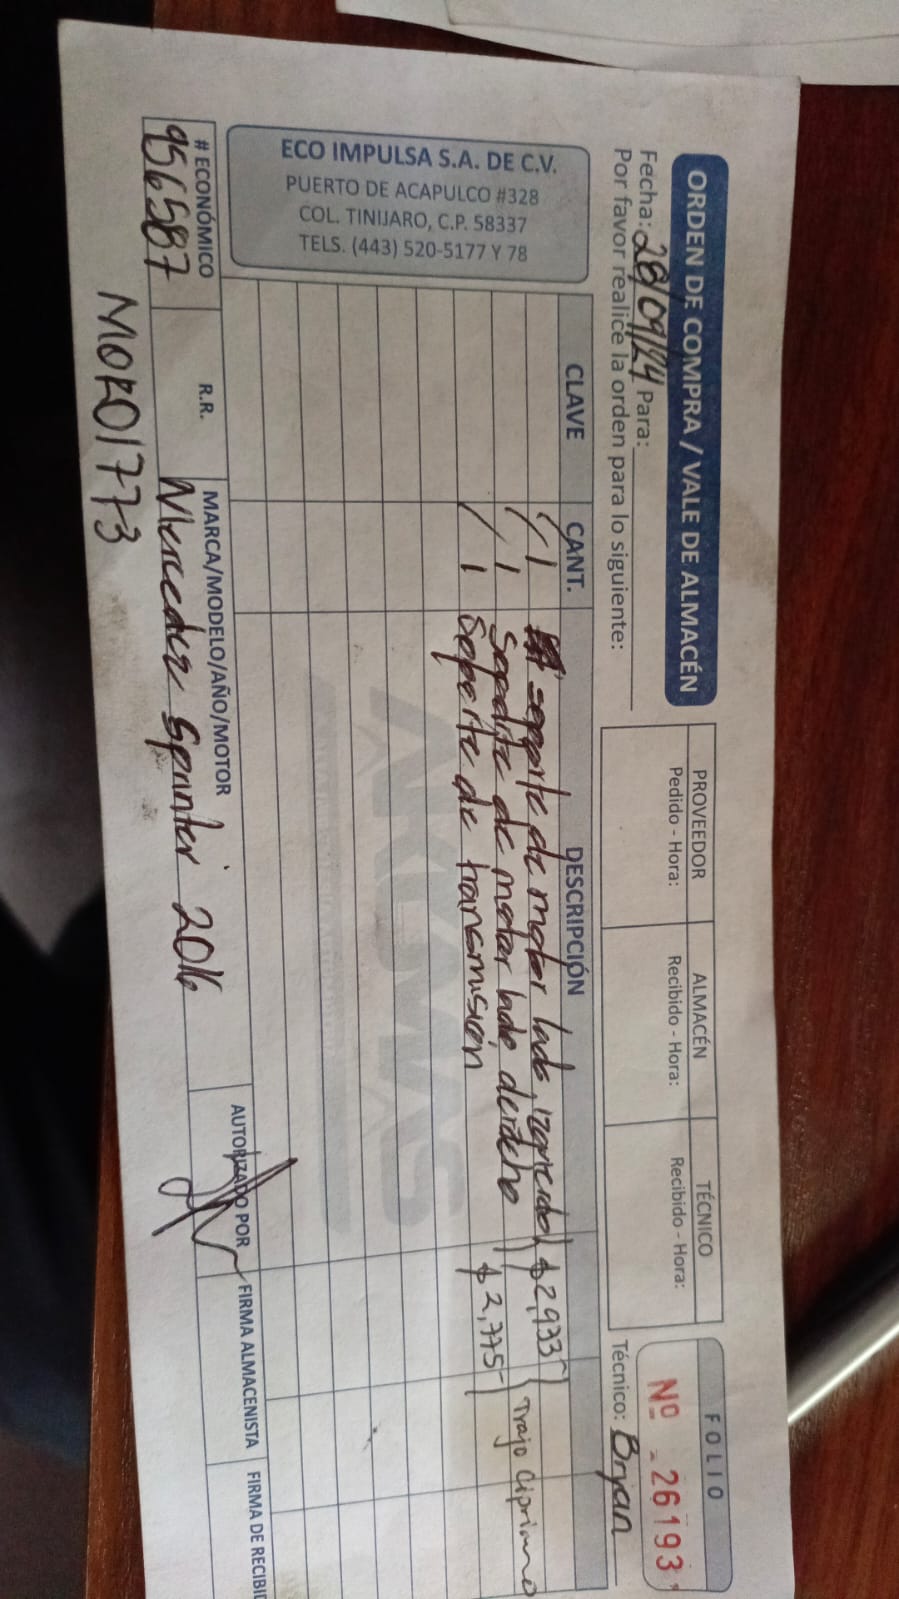 ORDEN DE COMPRA / VALE DE ALMACÉN
Fecha: 28/09/24 Para:
Por favor realice la orden para lo siguiente:
PROVEEDOR
Pedido - Hora:
ALMACÉN
Recibido - Hora:
TÉCNICO
Recibido - Hora:
FOLIO
Nº 26193
Técnico: Bryan
ECO IMPULSA S.A. DE C.V.
PUERTO DE ACAPULCO #328
COL. TINIJARO, C.P. 58337
TELS. (443) 520-5177 Y 78
CLAVE CANT. DESCRIPCIÓN
/ 1 soporte de motor lado izquierdo $2,933
/ 1 soporte de motor lado derecho Trajo Cipriano
/ 1 Soporte de transmisión $2,775
AKUMAS
# ECONÓMICO R.R. MARCA/MODELO/AÑO/MOTOR AUTORIZADO POR FIRMA ALMACENISTA FIRMA DE RECIBI
956587 Mercedez Sprinter 2016
MOR01773